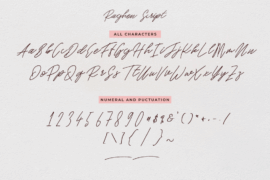 Raghen Script
ALL CHARACTERS
AaBbCcDdEeFfGgHhIiJjKkLlMmNn
OoPpQqRrSsTtUuVvWwXxYyZz
NUMERAL AND PUCTUATION
1234567890